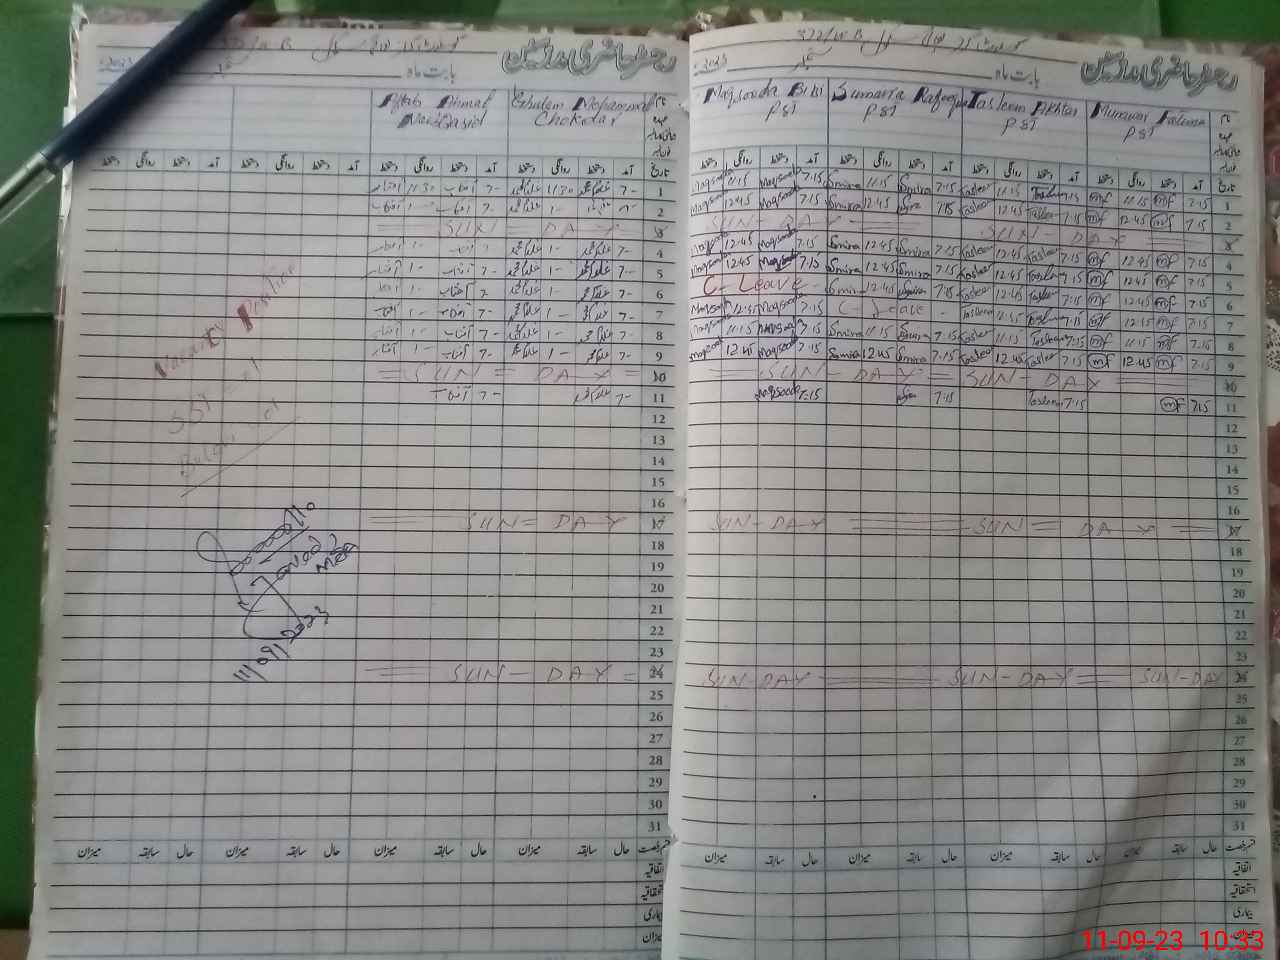 رجسٹر حاضری مدرسین
372/WB
گورنمنٹ گرلز پرائمری سکول
بابت ماہ ستمبر 2023
Maqsooda Bibi PST
Sumaira Rafeeque PST
Tasleem Akhtar PST
Munawar Fatima PST
تاریخ آمد دستخط روانگی دستخط آمد دستخط روانگی دستخط آمد دستخط روانگی دستخط آمد دستخط روانگی دستخط
1 7:15 mf 11:15 mf 7:15 Tasleem 11:15 Tasleem 7:15 Smira 11:15 Smira 7:15 Maqsooda 11:15 Maqsooda
2 7:15 mf 12:45 mf 7:15 Tasleem 12:45 Tasleem 7:15 12:45 Smira 7:15 Maqsooda 12:45 Maqsooda
3 SUN - DAY SUN - DAY
4 7:15 mf 12:45 mf 7:15 Tasleem 12:45 Tasleem 7:15 Smira 12:45 Smira 7:15 Maqsooda 12:45 Maqsooda
5 7:15 mf 12:45 mf 7:15 Tasleem 12:45 Tasleem 7:15 Smira 12:45 Smira 7:15 Maqsooda 12:45 Maqsooda
6 7:15 mf 12:45 mf 7:15 Tasleem 12:45 Tasleem 7:15 Smira 12:45 Smira C - Leave
7 7:15 mf 12:45 mf 7:15 Tasleem 12:45 Tasleem C - Leave 7:15 Maqsooda 12:45 Maqsooda
8 7:15 mf 11:15 mf 7:15 Tasleem 11:15 Tasleem 7:15 Smira 11:15 Smira 7:15 Maqsooda 11:15 Maqsooda
9 7:15 mf 12:45 mf 7:15 Tasleem 12:45 Tasleem 7:15 Smira 12:45 Smira 7:15 Maqsooda 12:45 Maqsooda
10 SUN - DAY SUN - DAY
11 7:15 mf 7:15 Tasleem 7:15 7:15 Maqsooda
12
13
14
15
16
17 SUN - DAY SUN = DAY
18
19
20
21
22
23
24 SUN - DAY SUN - DAY SUN - DAY
25
26
27
28
29
30
31
قسم رخصت حال سابقہ میزان حال سابقہ میزان حال سابقہ میزان حال سابقہ میزان
اتفاقیہ
استحقاقیہ
بیماری
میزان
رجسٹر حاضری مدرسین
372/WB
گورنمنٹ گرلز پرائمری سکول
بابت ماہ ستمبر 2023
Aftab Ahmad Naib Qasid
Ghulam Mohammad Chokidar
تاریخ آمد دستخط روانگی دستخط آمد دستخط روانگی دستخط آمد دستخط روانگی دستخط آمد دستخط روانگی دستخط
1 7- غلام محمد 11:30 غلام محمد 7- آفتاب 11:30 آفتاب
2 7- 1- غلام محمد 7- آفتاب 1- آفتاب
3 SUN = DAY
4 7- غلام محمد 1- غلام محمد 7- آفتاب 1- آفتاب
5 7- غلام محمد 1- غلام محمد 7- آفتاب 1- آفتاب
6 7- غلام محمد 1- غلام محمد 7- آفتاب 1- آفتاب
7 7- غلام محمد 1- غلام محمد 7- آفتاب 1- آفتاب
8 7- غلام محمد 1- غلام محمد 7- آفتاب 1- آفتاب
9 7- غلام محمد 1- غلام محمد 7- آفتاب 1- آفتاب
10 SUN = DAY
11 7- غلام محمد 7- آفتاب
12
13
14
15
16
17 SUN = DAY
18
19
20
21
22
23
24 SUN - DAY
25
26
27
28
29
30
31
قسم رخصت حال سابقہ میزان حال سابقہ میزان حال سابقہ میزان حال سابقہ میزان
اتفاقیہ
استحقاقیہ
بیماری
میزان
Vacant Position
Javed
MEA
11/09/2023
11-09-23 10:33